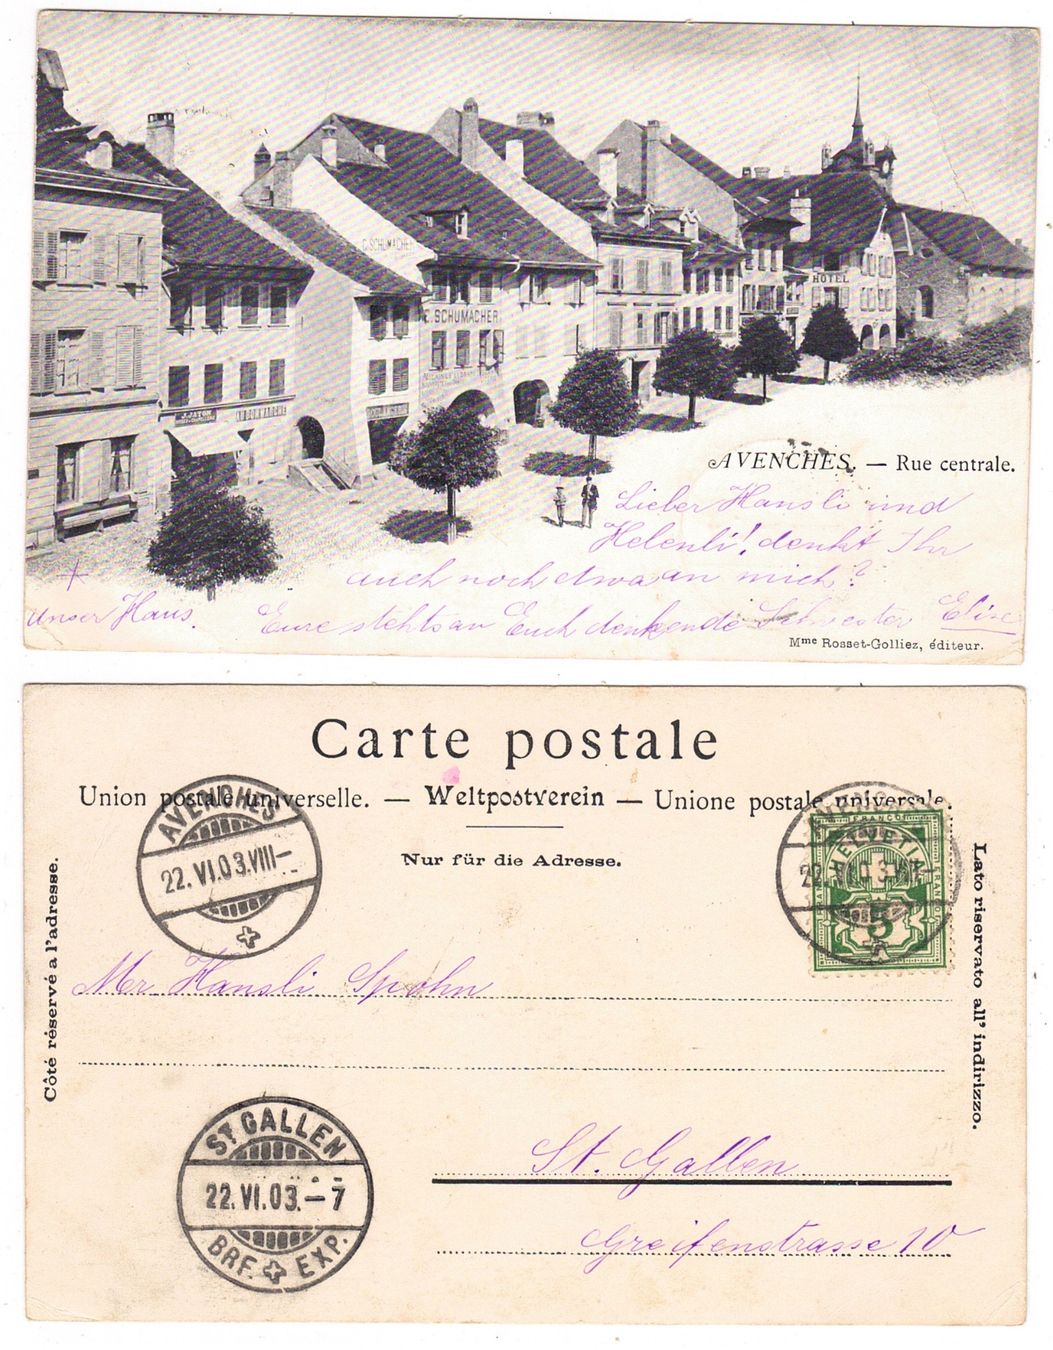 C. SCHUMACHER
C. SCHUMACHER
HÔTEL
J. JATON
AU BON MARCHÉ
AVENCHES. — Rue centrale.
Lieber Hansli und
Helenli! denkt Ihr
auch noch etwa an mich?
Unser Haus.
Eure stehts an Euch denkende Schwester Elise
Mme Rosset-Golliez, éditeur.
Carte postale
Union postale universelle. — Weltpostverein — Unione postale universale.
Nur für die Adresse.
Côté réservé à l'adresse.
Lato riservato all' indirizzo.
AVENCHES
22.VI.03.VIII–
AVENCHES
22.VI.03.VIII–
FRANCO
HELVETIA
FRANCO
FRANCO
5
Mr Hansli Spohn
St. Gallen
Greifenstrasse 10
ST. GALLEN
22.VI.03.–7
BRF. EXP.